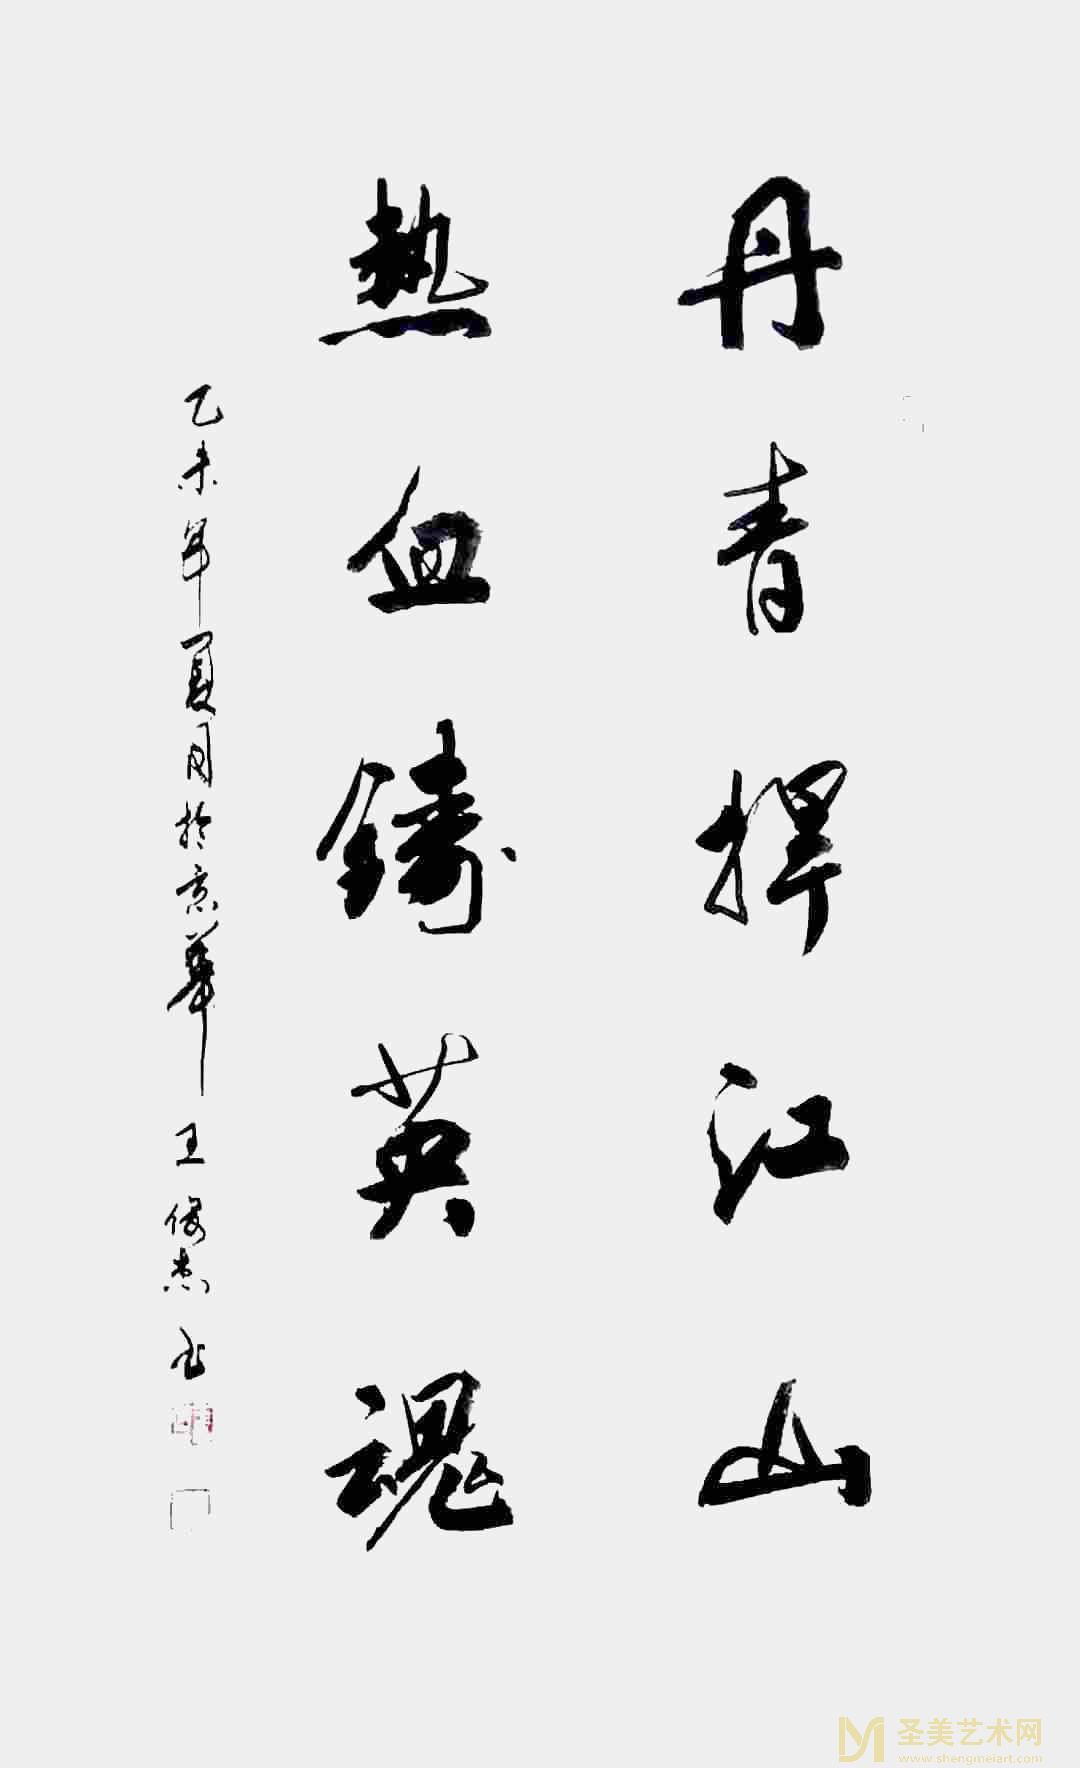 丹青捍江山
熱血鑄英魂
乙未年夏月於京華王俊杰书
圣美艺术网
www.shengmeiart.com